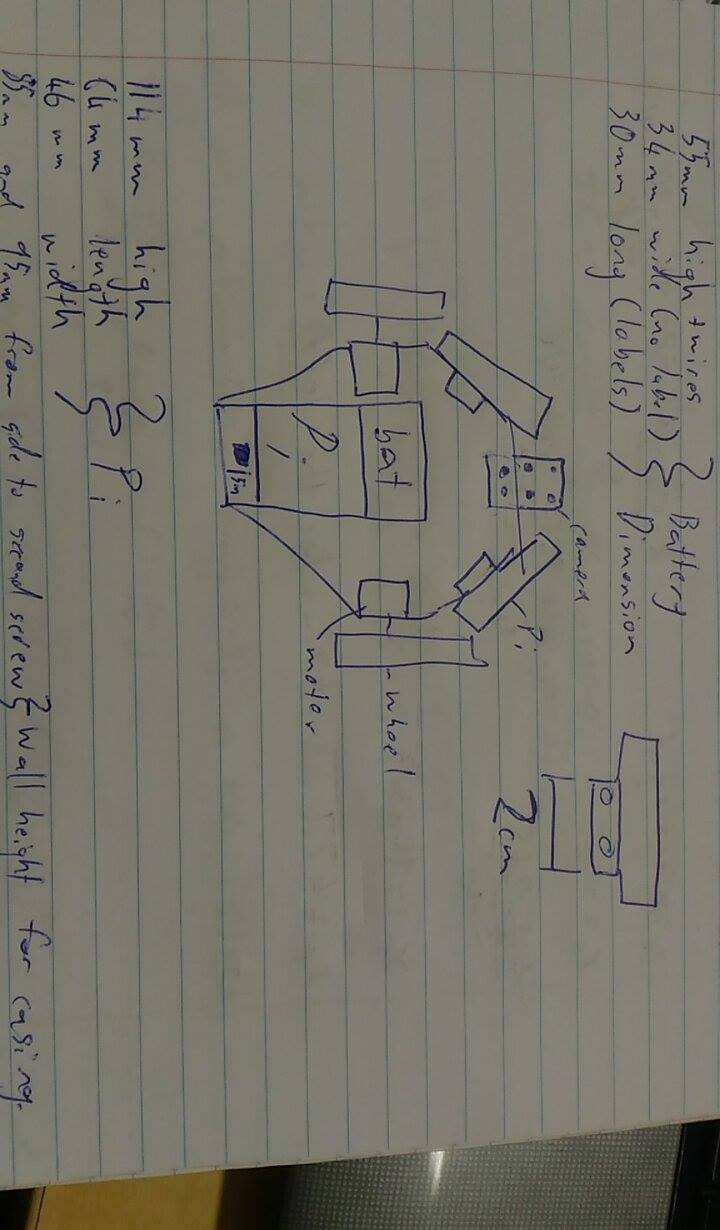 55mm high + wires
34mm wide (no label)
30mm long (labels)
Battery
Dimension
camera
Pi
2cm
bat
wheel
Pi
motor
114 mm high
64 mm length
46 mm width
Pi
and 95mm from side to second screw } wall height for casing.